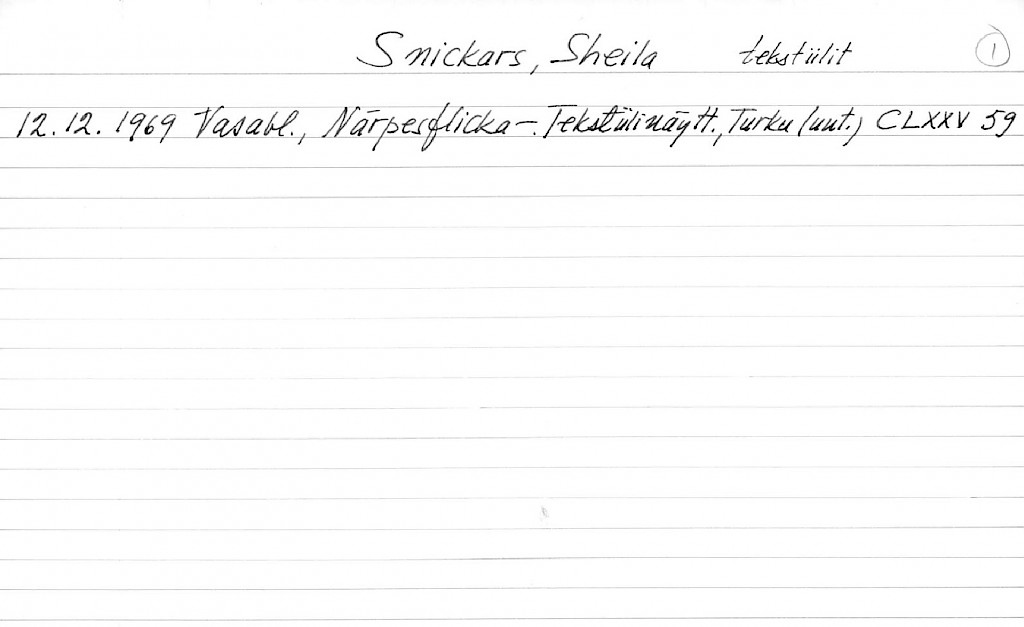 Snickars, Sheila tekstiilit 1
12.12.1969 Vasabl., Närpesflicka-. Tekstiilinäytt., Turku (uut.) CLXXV 59